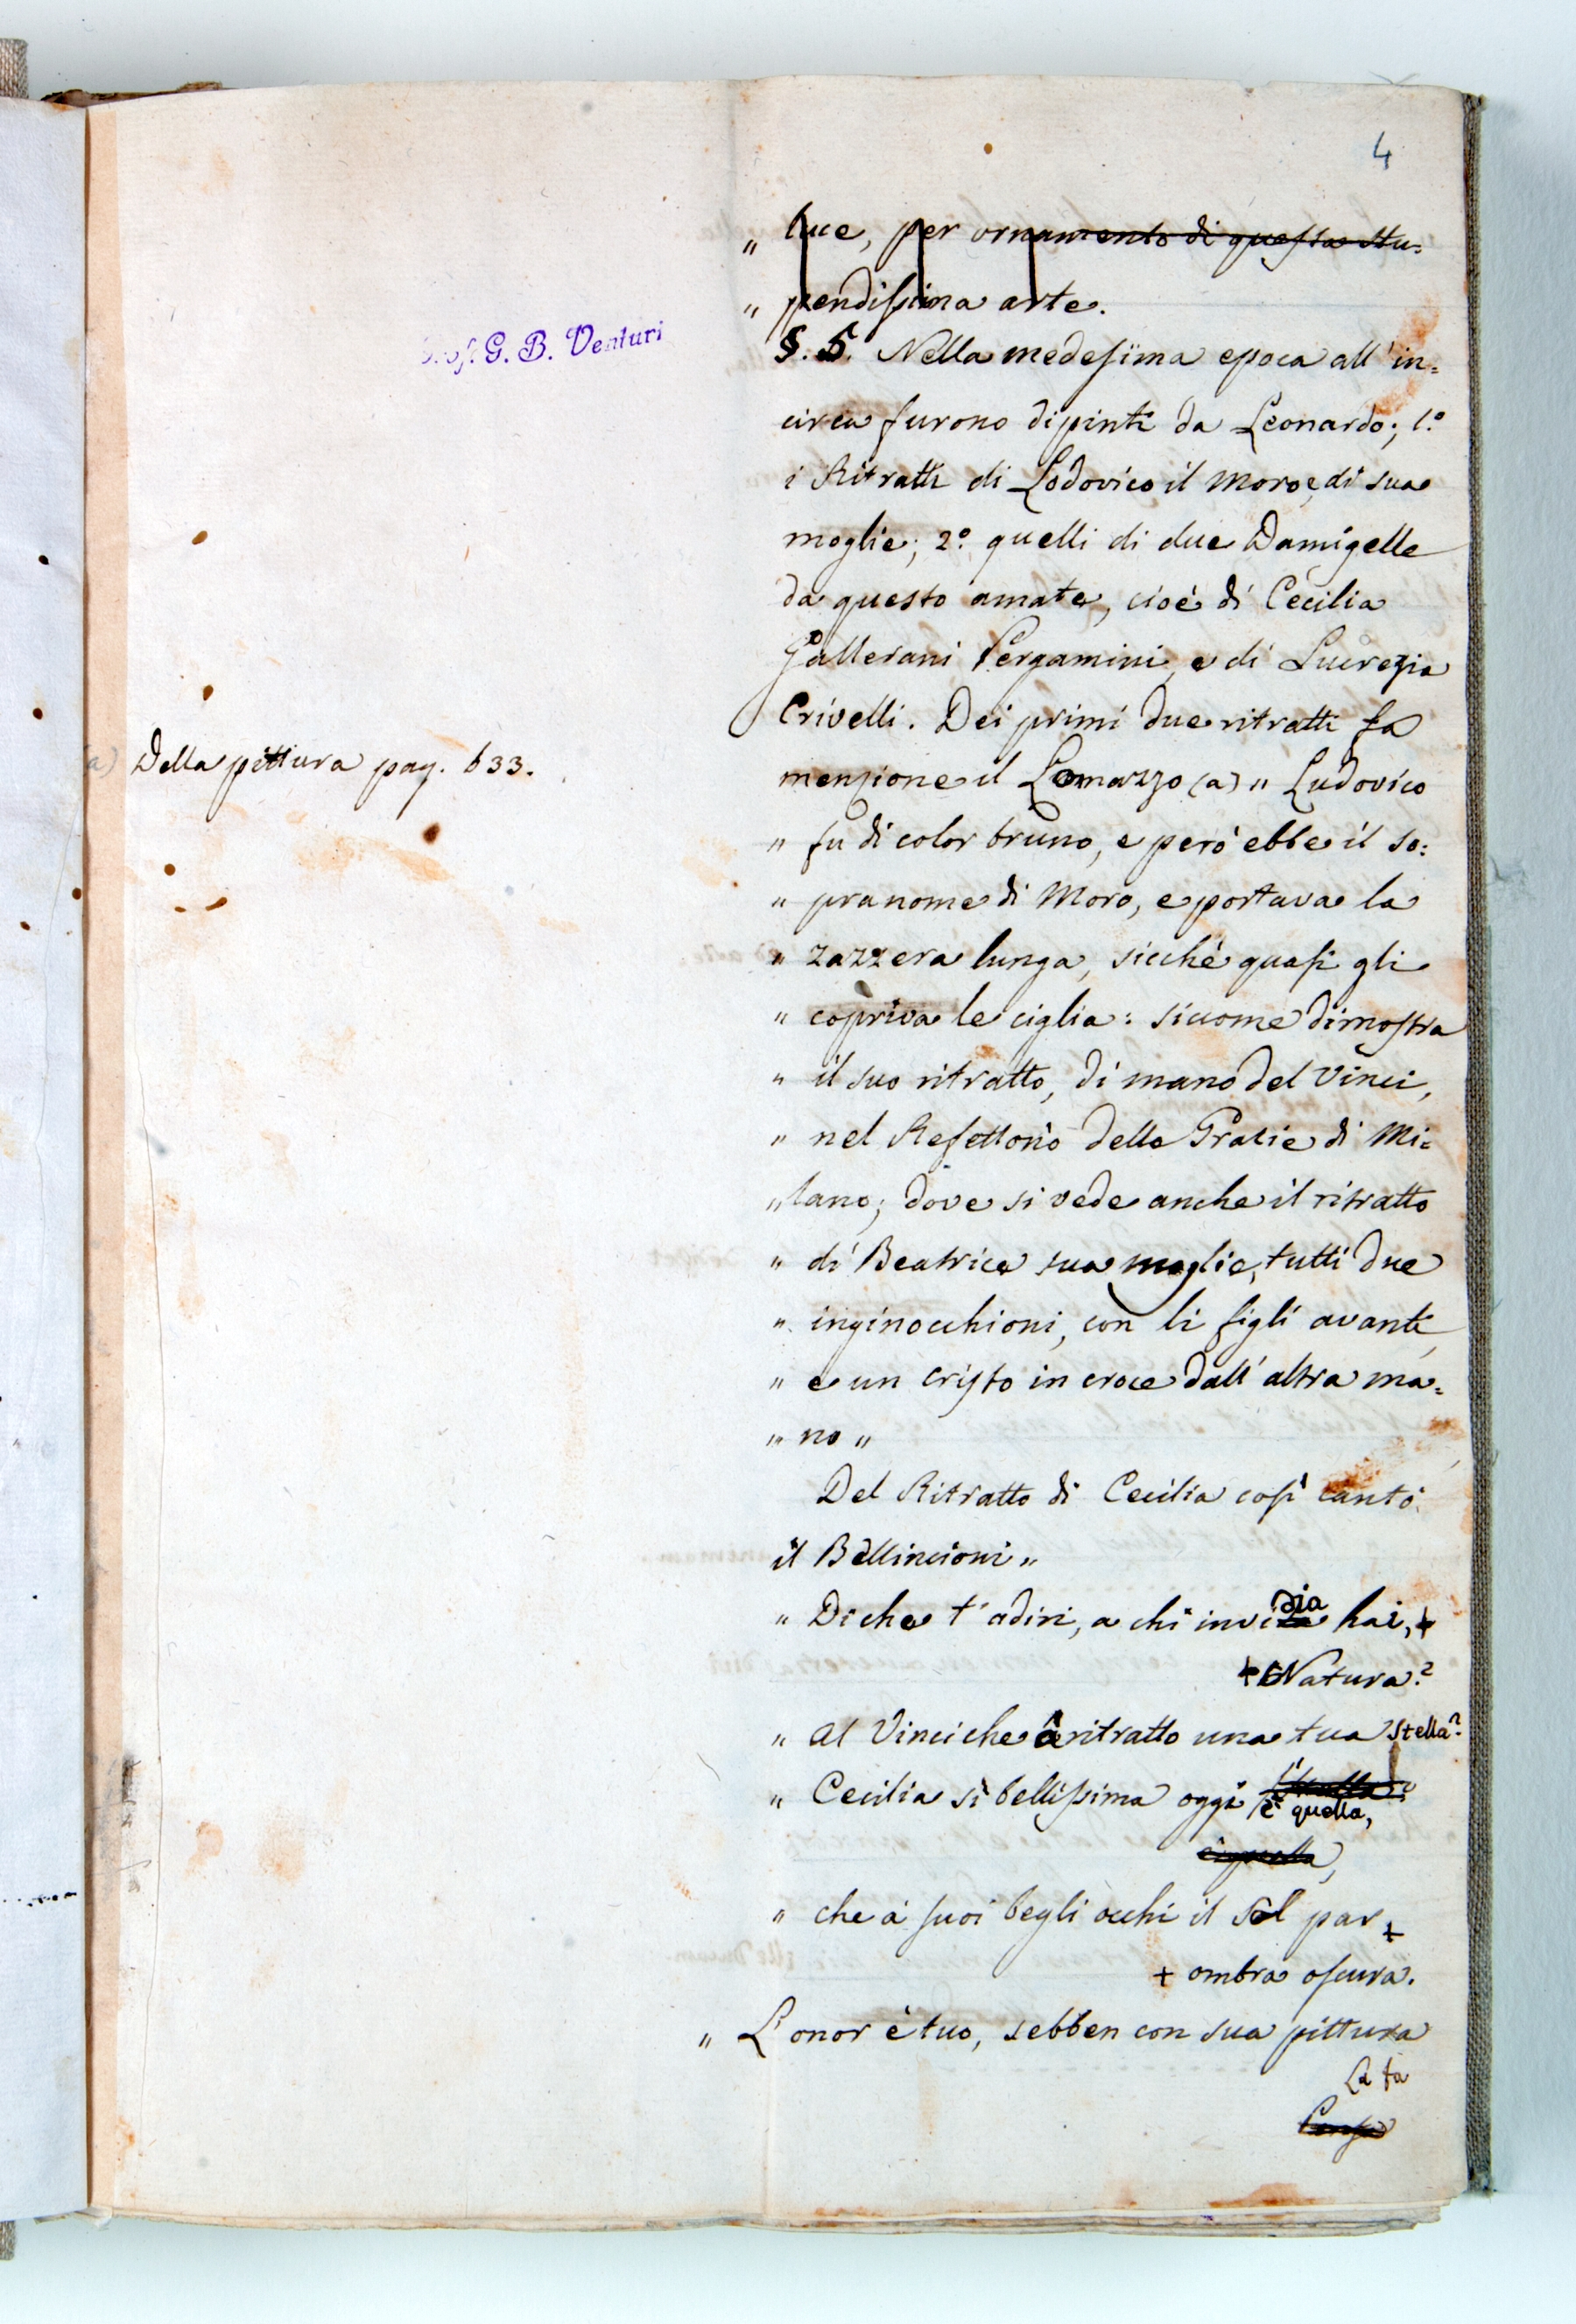 4
„ luce, per ornamento di questa stu=
„ pendissima arte.
Prof. G. B. Venturi
§. 5. Nella medesima epoca all' in=
circa furono dipinti da Leonardo; 1.º
i Ritratti di Lodovico il Moro e di sua
moglie; 2.º quelli di due Damigelle
da questo amate, cioè di Cecilia
Gallerani Pergamini, e di Lucrezia
Crivelli. Dei primi due ritratti fa
menzione il Lomazzo (a) „ Ludovico
a) Della pittura pag. 633.
„ fu di color bruno, e però ebbe il so=
„ pranome di Moro, e portava la
„ zazzera lunga, sicchè quasi gli
„ copriva le ciglia: siccome dimostra
„ il suo ritratto, di mano del Vinci,
„ nel Refettorio delle Grazie di Mi=
„ lano; dove si vede anche il ritratto
„ di Beatrice sua moglie, tutti due
„ inginocchioni, con li figli avanti,
„ e un Cristo in croce dall' altra ma=
„ no „
Del Ritratto di Cecilia così cantò
il Bellincioni „
„ Di che t' adiri, a chi invidia hai, +
+ Natura?
„ al Vinci che à ritratto una tua stella?
„ Cecilia sì bellissima oggi è quella,
è quella,
„ che a' suoi begli occhi il sol par +
+ ombra oscura.
„ L' onor è tuo, sebben con sua pittura
La fa